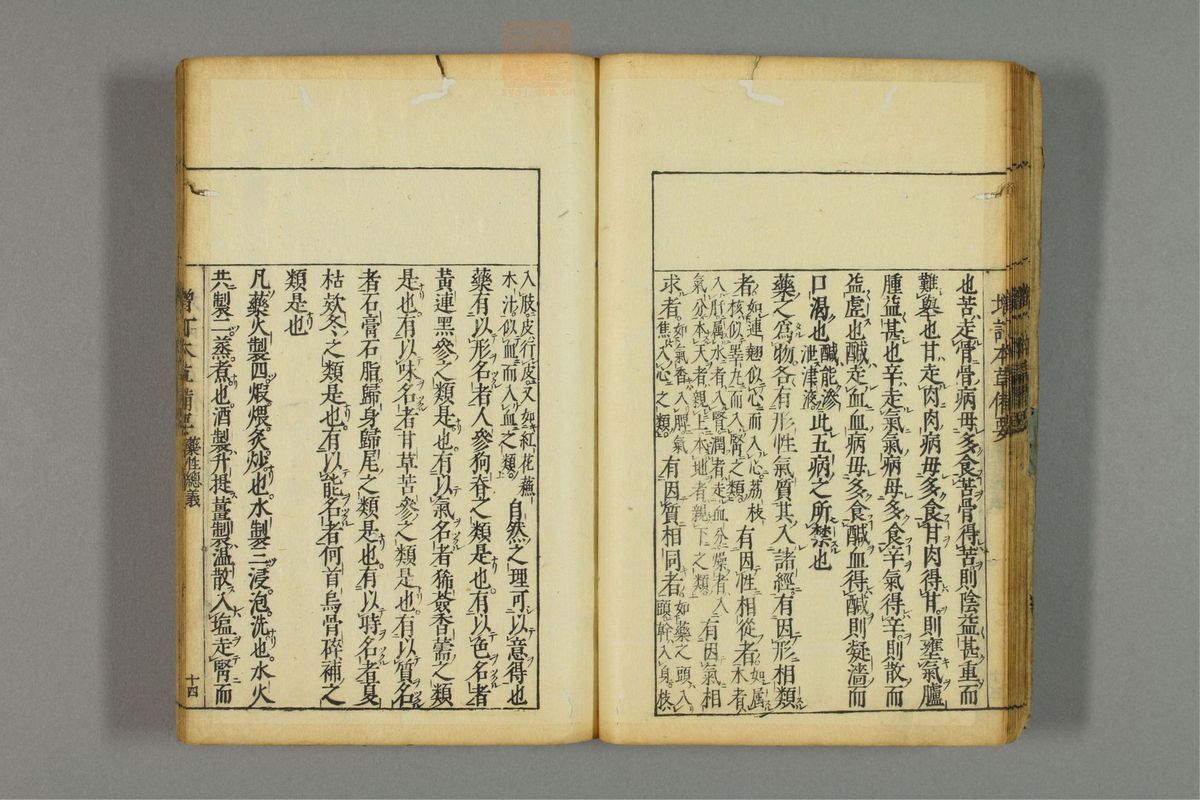 也苦走骨骨病毋多食苦骨得苦則陰益甚重而
難舉也甘走肉肉病毋多食甘肉得甘則壅氣臚
腫益甚也辛走氣氣病毋多食辛氣得辛則散而
益虛也醎走血血病毋多食醎血得醎則凝濇而
口渴也醎能滲泄津液此五病之所禁也
藥之爲物各有形性氣質其入諸經有因形相類
者如連翹似心而入心荔枝核似睾丸而入腎之類有因性相從者如属木者
入肝属水者入腎潤者走血分燥者入氣分本天者親上本地者親下之類有因氣相
求者如氣香入脾氣焦入心之類有因質相同者如藥之頭入頭幹入身枝
入肢皮行皮又如紅花蘓木汁似血而入血之類自然之理可以意得也
藥有以形名者人參狗脊之類是也有以色名者
黃連黑參之類是也有以氣名者豨薟香薷之類
是也有以味名者甘草苦參之類是也有以質名
者石膏石脂歸身歸尾之類是也有以時名者夏
枯欵冬之類是也有以能名者何首烏骨碎補之
類是也
凡藥火製四煆煨炙炒也水製三浸泡洗也水火
共製二蒸煮也酒製升提薑製溫散入塩走腎而
藥性總義
十四
增訂本草備要